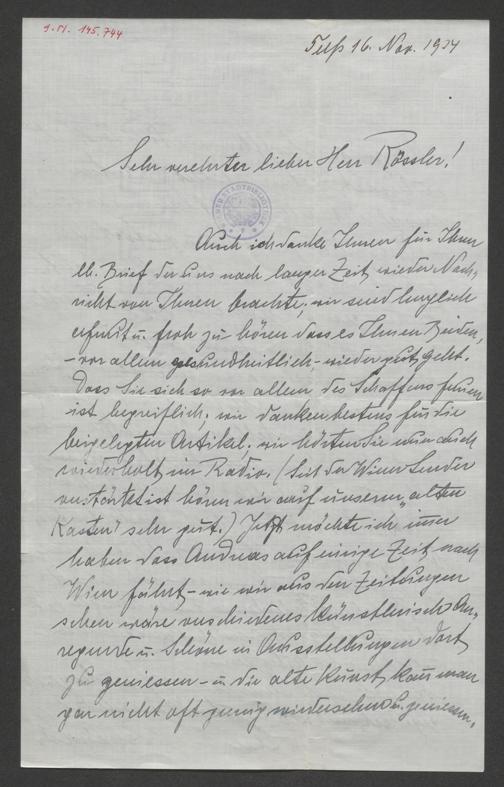 J.N. 145.744
Telfs 16. Nov. 1934
Sehr verehrter lieber Herr Rössler!
Auch ich danke Ihnen für Ihren
lb. Brief der uns nach langer Zeit wieder Nach-
richt von Ihnen brachte; wir sind herzlich
erfreut u. froh zu hören dass es Ihnen Beiden,
– vor allem gesundheitlich – wieder gut geht.
Dass Sie sich so vor allem des Schaffens freuen
ist begreiflich; wir danken bestens für die
beigelegten Artikel; wir hörten Sie nun auch
wiederholt im Radio. (Seit der Wiener Sender
verstärkt ist hören wir auf unserm „alten
Kasten" sehr gut.) Jetzt möchte ich immer
haben dass Andreas auf einige Zeit nach
Wien fährt – wie wir aus den Zeitungen
sehen wäre verschiedenes künstlerisch An-
regende u. Schöne in Ausstellungen dort
zu geniessen – u. die alte Kunst kann man
gar nicht oft genug wiedersehen u. geniessen.